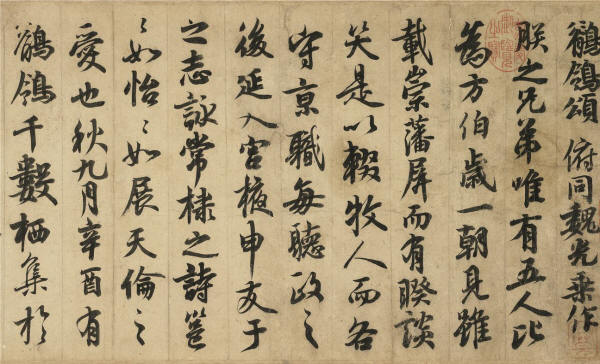 鶺鴒頌 俯同魏光乘作
朕之兄弟唯有五人比
為方伯歲一朝見雖
載崇藩屏而有睽談
笑是以輟牧人而各
守京職每聽政之
後延入宮掖申友于
之志詠常棣之詩邕
〻如怡〻如展天倫之
愛也秋九月辛酉有
鶺鴒千數栖集於